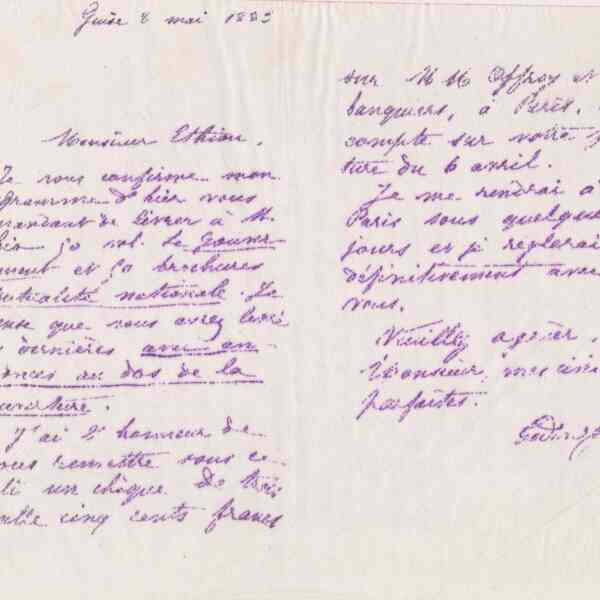 Guise 8 mai 1883
Monsieur Ethiou,
Je vous confirme mon
gramme d'hier vous
mandant de livrer à M.
50 vol. Le Gouver
nement et 50 brochures
tualité nationale. Je
ense que vous avez livré
dernières avec an-
onces au dos de la
uverture.
J'ai l'honneur de
vous remettre sous ce
pli un chèque de trois
mille cinq cents francs
sur MM Offroy et
banquiers, à Paris,
compte sur votre
ture du 6 avril.
Je me rendrai à
Paris sous quelques
jours et je réglerai
définitivement avec
vous.
Veuillez agréer,
Monsieur, mes
parfaites.
Godin